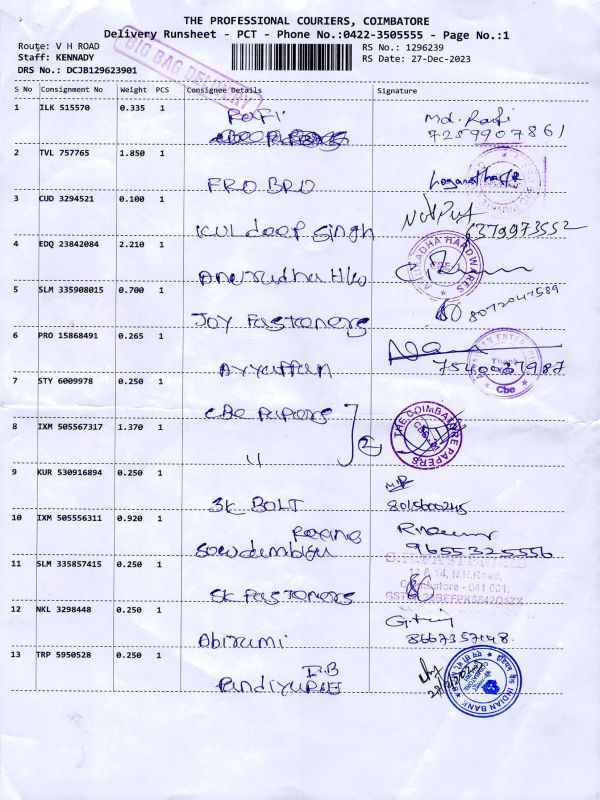 THE PROFESSIONAL COURIERS, COIMBATORE
Delivery Runsheet - PCT - Phone No.:0422-3505555 - Page No.:1
Route: V H ROAD
RS No.: 1296239
Staff: KENNADY
RS Date: 27-Dec-2023
DRS No.: DCJB129623901
BIG BAG DELIVERY
S No Consignment No Weight PCS Consignee Details Signature
1 ILK 515570 0.335 1 Rafi Md. Rafi
7259907861
2 TVL 757765 1.850 1
FRO BRO
3 CUD 3294521 0.100 1
Kuldeep Singh 6379973552
4 EDQ 23842084 2.210 1
Anuradha H/w
ANURADHA HARDWARES
5 SLM 335908015 0.700 1
Joy Fastoners 8072047589
6 PRO 15868491 0.265 1
Ayyappan 7540037987
Thank
Cbe
7 STY 6009978 0.250 1
CBE Papers
8 IXM 505567317 1.370 1
2
THE COIMBATORE PAPERS
11
9 KUR 530916894 0.250 1
SK BOLT 8015600245
10 IXM 505556311 0.920 1
9655325556
11 SLM 335857415 0.250 1
12 & 14, N.H.Road,
Coimbatore - 641 001.
SK Fastoners
12 NKL 3298448 0.250 1
Abirami 8667357148
13 TRP 5950528 0.250 1
I.B
INDIAN BANK